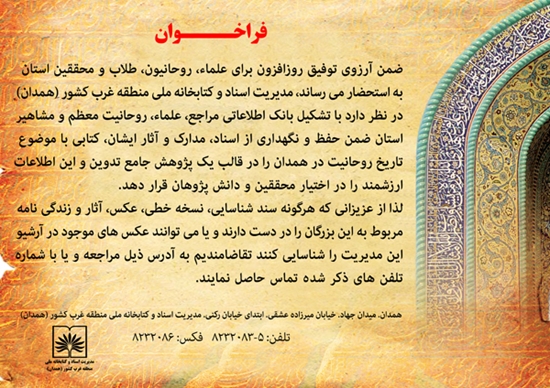 فراخـــوان
ضمن آرزوی توفیق روزافزون برای علماء، روحانیون، طلاب و محققین استان
به استحضار می رساند، مدیریت اسناد و کتابخانه ملی منطقه غرب کشور (همدان)
در نظر دارد با تشکیل بانک اطلاعاتی مراجع، علماء، روحانیت معظم و مشاهیر
استان ضمن حفظ و نگهداری از اسناد، مدارک و آثار ایشان، کتابی با موضوع
تاریخ روحانیت در همدان را در قالب یک پژوهش جامع تدوین و این اطلاعات
ارزشمند را در اختیار محققین و دانش پژوهان قرار دهد.
لذا از عزیزانی که هرگونه سند شناسایی، نسخه خطی، عکس، آثار و زندگی نامه
مربوط به این بزرگان را در دست دارند و یا می توانند عکس های موجود در آرشیو
این مدیریت را شناسایی کنند تقاضامندیم به آدرس ذیل مراجعه و یا با شماره
تلفن های ذکر شده تماس حاصل نمایند.
همدان، میدان جهاد، خیابان میرزاده عشقی، ابتدای خیابان رکنی، مدیریت اسناد و کتابخانه ملی منطقه غرب کشور (همدان)
تلفن: ۵-۸۲۳۲۰۸۳ فکس: ۸۲۳۲۰۸۶
مدیریت اسناد و کتابخانه ملی
منطقه غرب کشور (همدان)